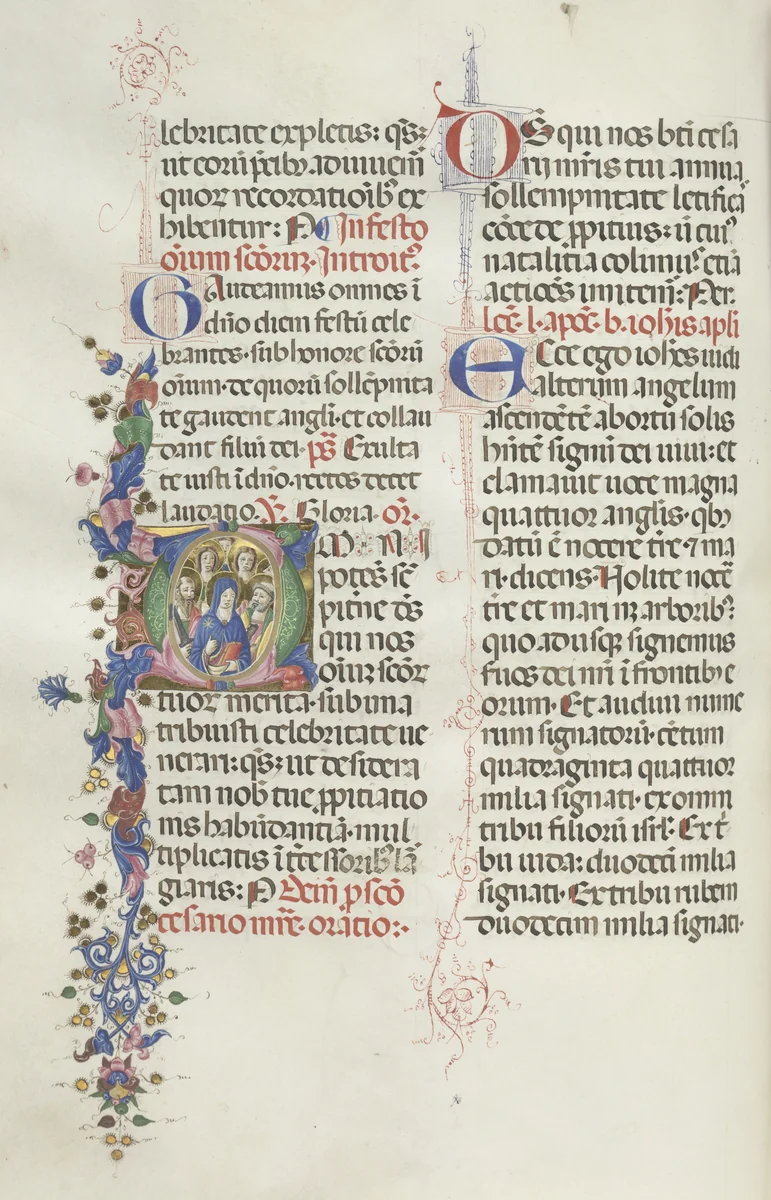 lebritate expletis: qs̄:
ut eoꝝ p̄cibꝰ adiuuem̄
quoꝝ recordatiōibꝰ ex
hibentur: P In festo
oīum scōrum. Introitꝰ.
Gaudeamus omnes ī
dn̄o diem festū cele
brantes. sub honore scōrū
oīum. de quorū sollēpnita
te gaudent angli. et collau
dant filiū dei. ps̄ Exulta
te iusti ī dn̄o. rectos decet
laudatio. V̄. Gloria. or̄.
OMNIS
potēs sē
pit̄ne ds̄
qui nos
oīuꝫ scōꝝ
tuoꝝ merita. sub una
tribuisti celebritate ue
nerari: qs̄: ut desidera
tam nob̄ tue ꝓpitiatio
nis habūdantiā. mul
tiplicatis īt̄cessoribꝰ lā
giaris: P Dem̄ ꝑ scō
cesario mr̄e. oratio:.
DS̄ qui nos bt̄i cesa
rij mr̄is tui annua
sollempnitate letificas
cōcede ꝓpitius: ut cuiꝰ
natalitia colimꝰ. etiā
actiōes imitem̄: Per.
lec̄. l. apoc̄. b. ioh̄is apl̄i
Ecce ego ioh̄es uidi
alterum angelum
ascendētē ab ortu solis
hn̄tē signū dei uiui: et
clamauit uoce magna
quattuor anglīs. qbꝰ
datū ē nocere tr̄e. ⁊ ma
ri. dicens. Nolite nocē
tr̄e et mari nꝫ arboribꝰ:
quoadusqꝫ signemus
suos dei nr̄i ī frontibꝰ e
orum. Et audiui nume
rum signatorū. cētum
quadraginta quattuor
milia signati. ex omni
tribu filiorū isrl̄. Ex t̄
bu iuda: duodeci milia
signati. Ex tribu ruben
duodecim milia signati.